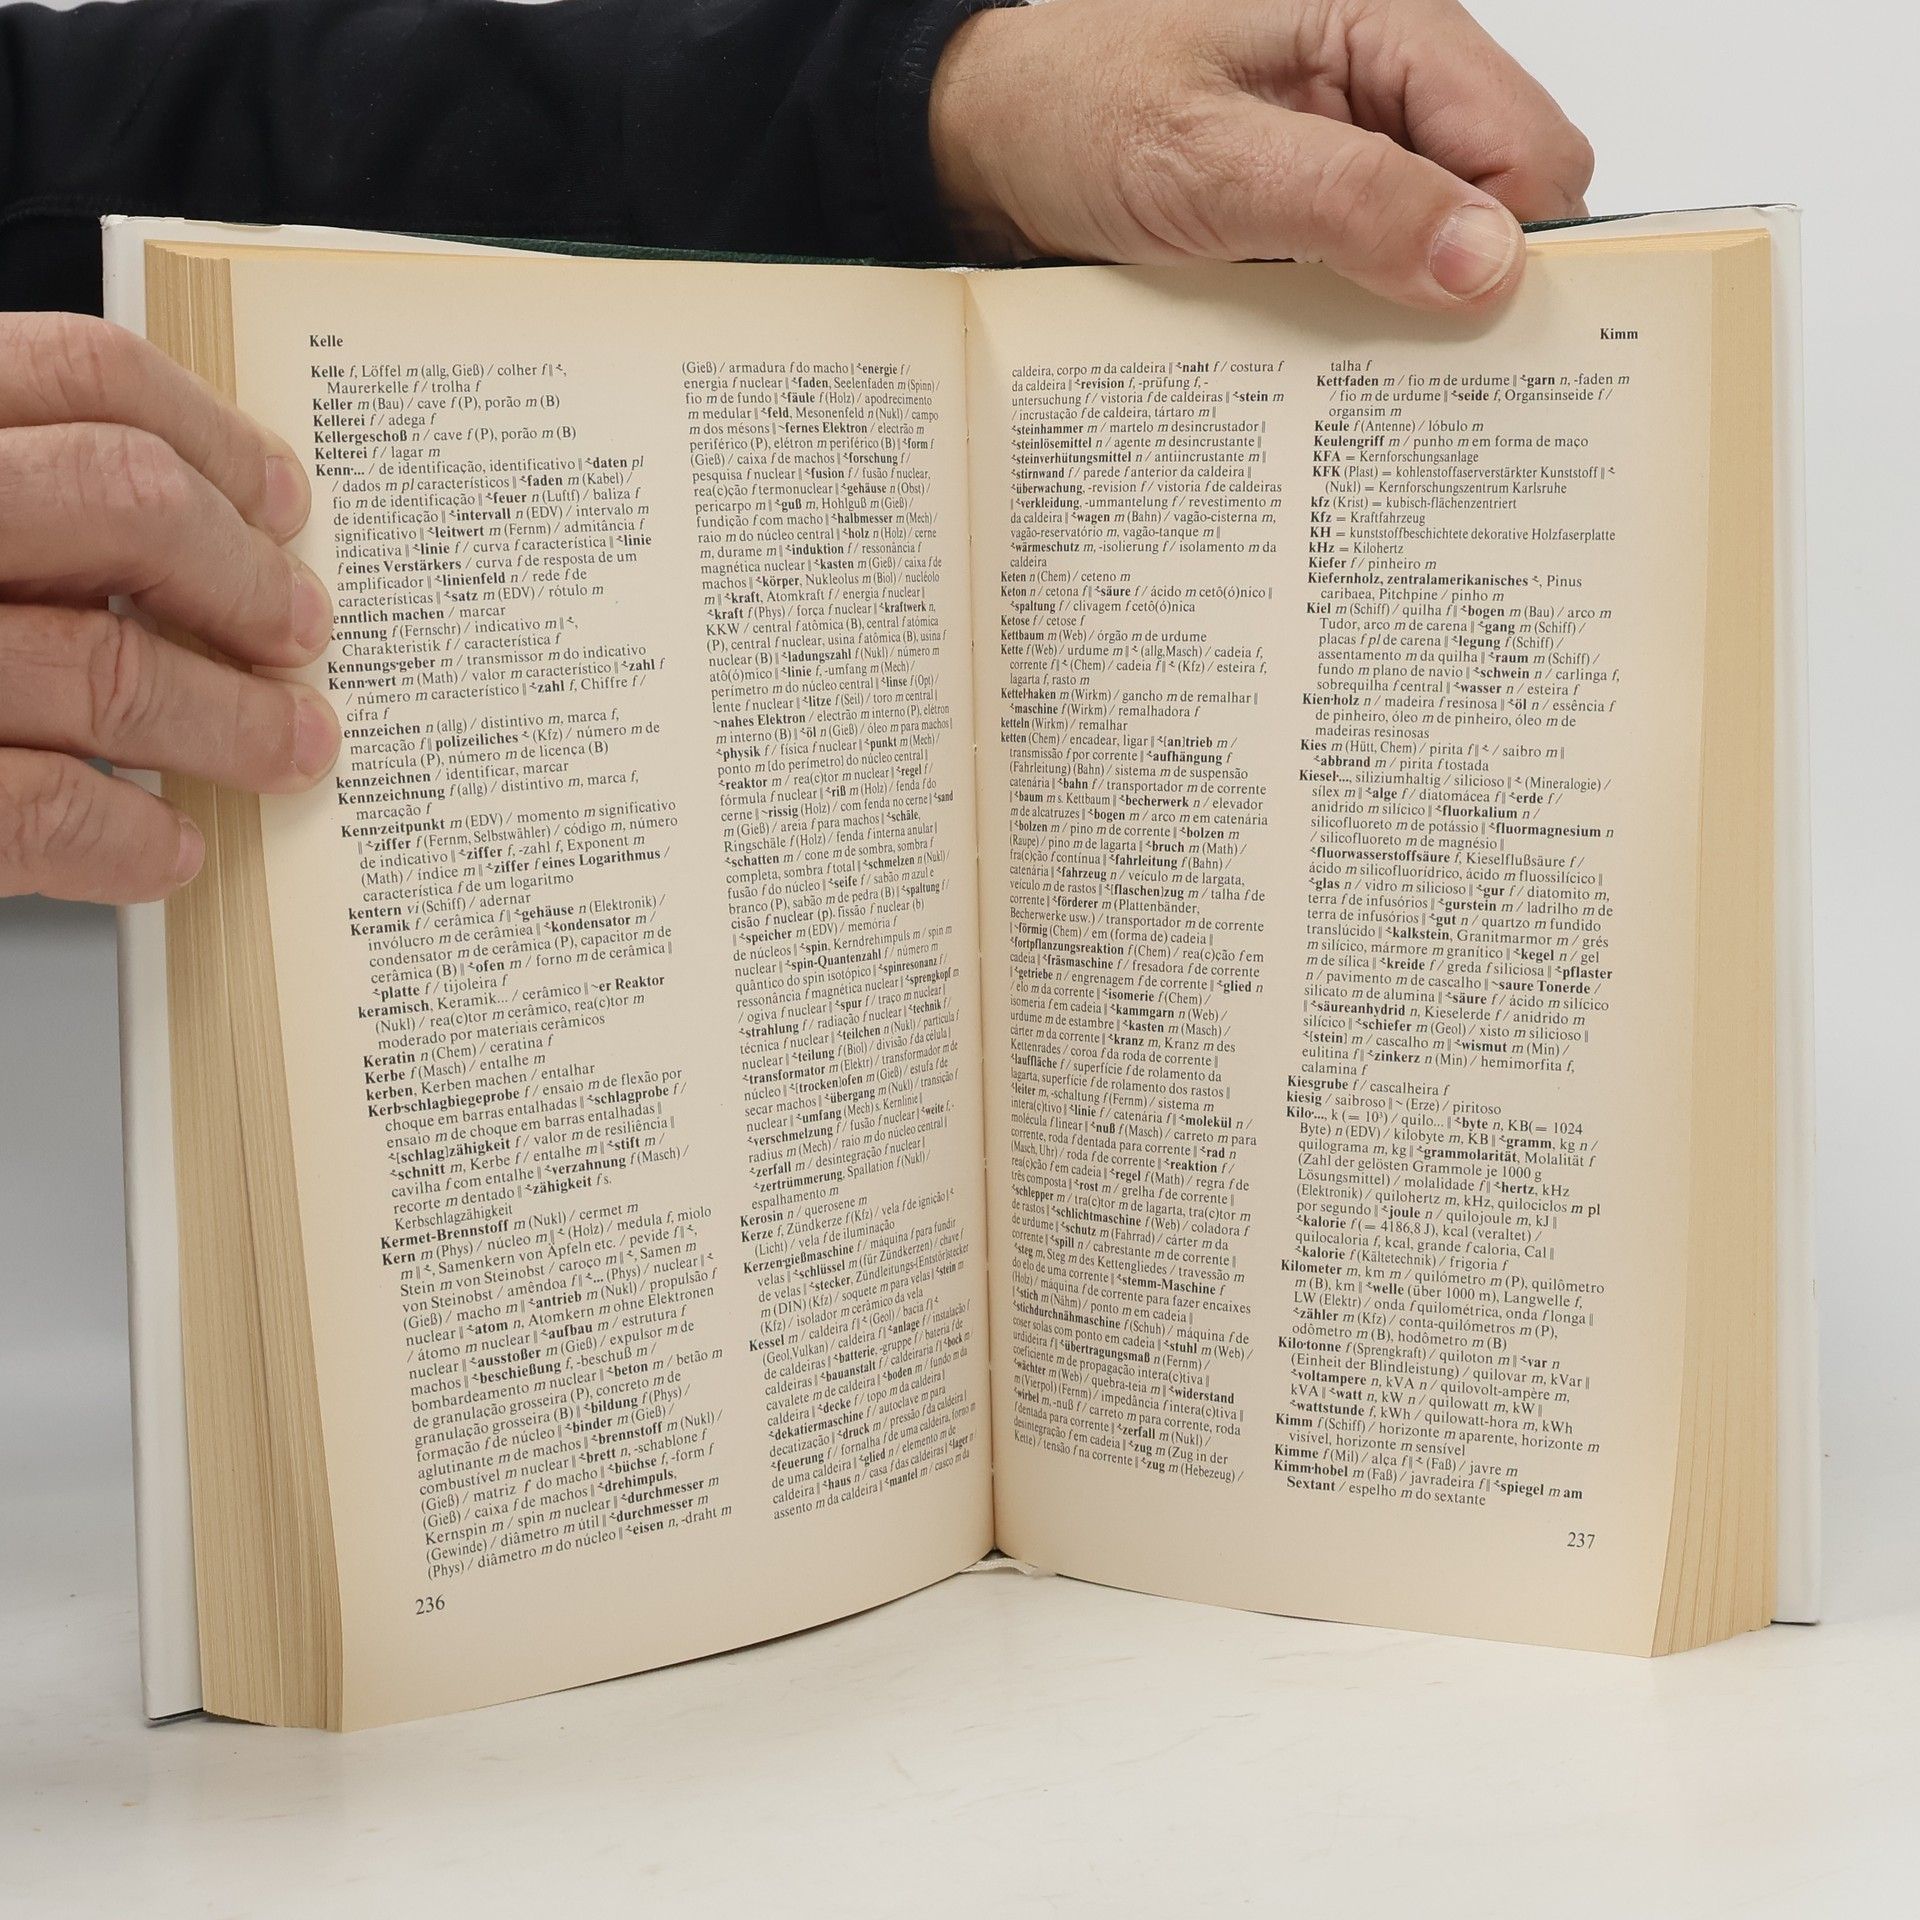 Kelle
Kelle f, Löffel m (allg, Gieß) / colher f ‖ ~,
Maurerkelle f / trolha f
Keller m (Bau) / cave f (P), porão m (B)
Kellerei f / adega f
Kellergeschoß n / cave f (P), porão m (B)
Kelterei f / lagar m
Kenn-... / de identificação, identificativo ‖ ~daten pl
/ dados m pl característicos ‖ ~faden m (Kabel) /
fio m de identificação ‖ ~feuer n (Luftf) / baliza f
de identificação ‖ ~intervall n (EDV) / intervalo m
significativo ‖ ~leitwert m (Fernm) / admitância f
indicativa ‖ ~linie f / curva f característica ‖ ~linie
f eines Verstärkers / curva f de resposta de um
amplificador ‖ ~linienfeld n / rede f de
características ‖ ~satz m (EDV) / rótulo m
enntlich machen / marcar
ennung f (Fernschr) / indicativo m ‖ ~,
Charakteristik f / característica f
Kennungs·geber m / transmissor m do indicativo
Kenn·wert m (Math) / valor m característico ‖ ~zahl f
/ número m característico ‖ ~zahl f, Chiffre f /
cifra f
ennzeichen n (allg) / distintivo m, marca f,
marcação f ‖ polizeiliches ~ (Kfz) / número m de
matrícula (P), número m de licença (B)
kennzeichnen / identificar, marcar
Kennzeichnung f (allg) / distintivo m, marca f,
marcação f
Kenn·zeitpunkt m (EDV) / momento m significativo
‖ ~ziffer f (Fernm, Selbstwähler) / código m, número
de indicativo ‖ ~ziffer f, -zahl f, Exponent m
(Math) / índice m ‖ ~ziffer f eines Logarithmus /
característica f de um logaritmo
kentern vi (Schiff) / adernar
Keramik f / cerâmica f ‖ ~gehäuse n (Elektronik) /
invólucro m de cerâmica ‖ ~kondensator m /
condensator m de cerâmica (P), capacitor m de
cerâmica (B) ‖ ~ofen m / forno m de cerâmica ‖
~platte f / tijoleira f
keramisch, Keramik... / cerâmico ‖ ~er Reaktor
(Nukl) / rea(c)tor m cerâmico, rea(c)tor m
moderado por materiais cerâmicos
Keratin n (Chem) / ceratina f
Kerbe f (Masch) / entalhe m
kerben, Kerben machen / entalhar
Kerb·schlagbiegeprobe f / ensaio m de flexão por
choque em barras entalhadas ‖ ~schlagprobe f /
ensaio m de choque em barras entalhadas ‖
~[schlag]zähigkeit f / valor m de resiliência ‖
~schnitt m, Kerbe f / entalhe m ‖ ~stift m /
cavilha f com entalhe ‖ ~verzahnung f (Masch) /
recorte m dentado ‖ ~zähigkeit f s.
Kerbschlagzähigkeit
Kermet-Brennstoff m (Nukl) / cermet m
Kern m (Phys) / núcleo m ‖ ~ (Holz) / medula f, miolo
m ‖ ~, Samenkern von Äpfeln etc. / pevide f ‖ ~,
Stein m von Steinobst / caroço m ‖ ~, Samen m
von Steinobst / amêndoa f ‖ ~... (Phys) / nuclear ‖ ~
(Gieß) / macho m ‖ ~antrieb m (Nukl) / propulsão f
nuclear ‖ ~atom n, Atomkern m ohne Elektronen
/ átomo m nuclear ‖ ~aufbau m / estrutura f
nuclear ‖ ~ausstoßer m (Gieß) / expulsor m de
machos ‖ ~beschießung f, -beschuß m /
bombardeamento m nuclear ‖ ~beton m / betão m
de granulação grosseira (P), concreto m de
granulação grosseira (B) ‖ ~bildung f (Phys) /
formação f de núcleo ‖ ~binder m (Gieß) /
aglutinante m de machos ‖ ~brennstoff m (Nukl) /
combustível m nuclear ‖ ~brett n, -schablone f
(Gieß) / matriz f do macho ‖ ~büchse f, -form f
(Gieß) / caixa f de machos ‖ ~drehimpuls,
Kernspin m / spin m nuclear ‖ ~durchmesser m
(Gewinde) / diâmetro m útil ‖ ~durchmesser m
(Phys) / diâmetro m do núcleo ‖ ~eisen n, -draht m
236
(Gieß) / armadura f do macho ‖ ~energie f /
energia f nuclear ‖ ~faden, Seelenfaden m (Spinn) /
fio m de fundo ‖ ~fäule f (Holz) / apodrecimento
m medular ‖ ~feld, Mesonenfeld n (Nukl) / campo
m dos mésons ‖ ~fernes Elektron / electrão m
periférico (P), elétron m periférico (B) ‖ ~form f
(Gieß) / caixa f de machos ‖ ~forschung f /
pesquisa f nuclear ‖ ~fusion f / fusão f nuclear,
rea(c)ção f termonuclear ‖ ~gehäuse n (Obst) /
pericarpo m ‖ ~guß m, Hohlguß m (Gieß) /
fundição f com macho ‖ ~halbmesser m (Mech) /
raio m do núcleo central ‖ ~holz n (Holz) / cerne
m, durame m ‖ ~induktion f / ressonância f
magnética nuclear ‖ ~kasten m (Gieß) / caixa f de
machos ‖ ~körper, Nukleolus m (Biol) / nucléolo
m ‖ ~kraft, Atomkraft f / energia f nuclear ‖
~kraft f (Phys) / força f nuclear ‖ ~kraftwerk n,
KKW / central f atômica (B), central f atómica
(P), central f nuclear, usina f atômica (B), usina f
nuclear (B) ‖ ~ladungszahl f (Nukl) / número m
atô(ó)mico ‖ ~linie f, -umfang m (Mech) /
perímetro m do núcleo central ‖ ~linse f (Opt) /
lente f nuclear ‖ ~litze f (Seil) / toro m central ‖
~nahes Elektron / electrão m interno (P), elétron
m interno (B) ‖ ~öl n (Gieß) / óleo m para machos ‖
~physik f / física f nuclear ‖ ~punkt m (Mech) /
ponto m [do perímetro] do núcleo central ‖
~reaktor m / rea(c)tor m nuclear ‖ ~regel f /
fórmula f nuclear ‖ ~riß m (Holz) / fenda f do
cerne ‖ ~rissig (Holz) / com fenda no cerne ‖ ~sand
m (Gieß) / areia f para machos ‖ ~schäle,
Ringschäle f (Holz) / fenda f interna anular ‖
~schatten m / cone m de sombra, sombra f
completa, sombra f total ‖ ~schmelzen n (Nukl) /
fusão f do núcleo ‖ ~seife f / sabão m azul e
branco (P), sabão m de pedra (B) ‖ ~spaltung f /
cisão f nuclear (p), fissão f nuclear (b)
‖ ~speicher m (EDV) / memória f
de núcleos ‖ ~spin, Kerndrehimpuls m / spin m
nuclear ‖ ~spin-Quantenzahl f / número m
quântico do spin isotópico ‖ ~spinresonanz f /
ressonância f magnética nuclear ‖ ~sprengkopf m
/ ogiva f nuclear ‖ ~spur f / traço m nuclear ‖
~strahlung f / radiação f nuclear ‖ ~technik f /
técnica f nuclear ‖ ~teilchen n (Nukl) / partícula f
nuclear ‖ ~teilung f (Biol) / divisão f da célula ‖
~transformator m (Elektr) / transformador m de
núcleo ‖ ~[trocken]ofen m (Gieß) / estufa f de
secar machos ‖ ~übergang m (Nukl) / transição f
nuclear ‖ ~umfang (Mech) s. Kernlinie ‖
~verschmelzung f / fusão f nuclear ‖ ~weite f, -
radius m (Mech) / raio m do núcleo central ‖
~zerfall m / desintegração f nuclear ‖
~zertrümmerung, Spallation f (Nukl) /
espalhamento m
Kerosin n / querosene m
Kerze f, Zündkerze f (Kfz) / vela f de ignição ‖ ~
(Licht) / vela f de iluminação
Kerzen·gießmaschine f / máquina f para fundir
velas ‖ ~schlüssel m (für Zündkerzen) / chave f
de velas ‖ ~stecker, Zündleitungs-[Entstör]stecker
m (DIN) (Kfz) / soquete m para velas ‖ ~stein m
(Kfz) / isolador m cerâmico da vela
Kessel m / caldeira f ‖ ~ (Geol) / bacia f ‖ ~
(Geol, Vulkan) / caldeira f ‖ ~anlage f / instalação f
de caldeiras ‖ ~batterie, -gruppe f / bateria f de
caldeiras ‖ ~bauanstalt f / caldeiraria f ‖ ~bock m
cavalete m de caldeira ‖ ~boden m / fundo m da
caldeira ‖ ~decke f / topo m da caldeira ‖
~dekatiermaschine f / autoclave m para
decatização ‖ ~druck m / pressão f da caldeira ‖
~feuerung f / fornalha f de uma caldeira, forno m
de uma caldeira ‖ ~glied n / elemento m de
caldeira ‖ ~haus n / casa f das caldeiras ‖ ~lager n /
assento m da caldeira ‖ ~mantel m / casco m da
Kimm
caldeira, corpo m da caldeira ‖ ~naht f / costura f
da caldeira ‖ ~revision f, -prüfung f, -
untersuchung f / vistoria f de caldeiras ‖ ~stein m
/ incrustação f de caldeira, tártaro m ‖
~steinhammer m / martelo m desincrustador ‖
~steinlösemittel n / agente m desincrustante ‖
~steinverhütungsmittel n / antiincrustante m ‖
~stirnwand f / parede f anterior da caldeira ‖
~überwachung, -revision f / vistoria f de caldeiras
‖ ~verkleidung, -ummantelung f / revestimento m
da caldeira ‖ ~wagen m (Bahn) / vagão-cisterna m,
vagão-reservatório m, vagão-tanque m ‖
~wärmeschutz m, -isolierung f / isolamento m da
caldeira
Keten n (Chem) / ceteno m
Keton n / cetona f ‖ ~säure f / ácido m cetô(ó)nico ‖
~spaltung f / clivagem f cetô(ó)nica
Ketose f / cetose f
Kettbaum m (Web) / órgão m de urdume
Kette f (Web) / urdume m ‖ ~ (allg, Masch) / cadeia f,
corrente f ‖ ~ (Chem) / cadeia f ‖ ~ (Kfz) / esteira f,
lagarta f, rasto m
Kettel·haken m (Wirkm) / gancho m de remalhar ‖
~maschine f (Wirkm) / remalhadora f
ketteln (Wirkm) / remalhar
ketten (Chem) / encadear, ligar ‖ ~[an]trieb m /
transmissão f por corrente ‖ ~aufhängung f
(Fahrleitung) (Bahn) / sistema m de suspensão
catenária ‖ ~bahn f / transportador m de corrente
‖ ~baum m s. Kettbaum ‖ ~becherwerk n / elevador
m de alcatruzes ‖ ~bogen m / arco m em catenária
‖ ~bolzen m / pino m de corrente ‖ ~bolzen m
(Raupe) / pino m de lagarta ‖ ~bruch m (Math) /
fra(c)ção f contínua ‖ ~fahrleitung f (Bahn) /
catenária ‖ ~fahrzeug n / veículo m de largata,
veículo m de rastos ‖ ~[flaschen]zug m / talha f de
corrente ‖ ~förderer m (Plattenbänder,
Becherwerke usw.) / transportador m de corrente
‖ ~förmig (Chem) / em (forma de) cadeia ‖
~fortpflanzungsreaktion f (Chem) / rea(c)ção f em
cadeia ‖ ~fräsmaschine f / fresadora f de corrente
‖ ~getriebe n / engrenagem f de corrente ‖ ~glied n
/ elo m da corrente ‖ ~isomerie f (Chem) /
isomeria f em cadeia ‖ ~kammgarn n (Web) /
urdume m de estambre ‖ ~kasten m (Masch) /
cárter m da corrente ‖ ~kranz m, Kranz m des
Kettenrades / coroa f da roda de corrente ‖
~lauffläche f / superfície f de rolamento da
lagarta, superfície f de rolamento dos rastos ‖
~leiter m, -schaltung f (Fernm) / sistema m
intera(c)tivo ‖ ~linie f / catenária f ‖ ~molekül n /
molécula f linear ‖ ~nuß f (Masch) / carreto m para
corrente, roda f dentada para corrente ‖ ~rad n
(Masch, Uhr) / roda f de corrente ‖ ~reaktion f /
rea(c)ção f em cadeia ‖ ~regel f (Math) / regra f de
três composta ‖ ~rost m / grelha f de corrente ‖
~schlepper m / tra(c)tor m de lagarta, tra(c)tor m
de rastos ‖ ~schlichtmaschine f (Web) / coladora f
de urdume ‖ ~schutz m (Fahrrad) / cárter m da
corrente ‖ ~spill n / cabrestante m de corrente ‖
~steg m, Steg m des Kettengliedes / travessão m
do elo de uma corrente ‖ ~stemm-Maschine f
(Holz) / máquina f de corrente para fazer encaixes
‖ ~stich m (Nähm) / ponto m em cadeia ‖
~stichdurchnähmaschine f (Schuh) / máquina f de
coser solas com ponto em cadeia ‖ ~stuhl m (Web) /
urdideira f ‖ ~übertragungsmaß n (Fernm) /
coeficiente m de propagação intera(c)tiva ‖
~wächter m (Web) / quebra-teia m ‖ ~widerstand
m (Vierpol) (Fernm) / impedância f intera(c)tiva ‖
~wirbel m, -nuß f / carreto m para corrente, roda
f dentada para corrente ‖ ~zerfall m (Nukl) /
desintegração f em cadeia ‖ ~zug m (Zug in der
Kette) / tensão f na corrente ‖ ~zug m (Hebezeug) /
talha f
Kett·faden m / fio m de urdume ‖ ~garn n, -faden m
/ fio m de urdume ‖ ~seide f, Organsinseide f /
organsim m
Keule f (Antenne) / lóbulo m
Keulengriff m / punho m em forma de maço
KFA = Kernforschungsanlage
KFK (Plast) = kohlenstoffaserverstärkter Kunststoff ‖ ~
(Nukl) = Kernforschungszentrum Karlsruhe
kfz (Krist) = kubisch-flächenzentriert
Kfz = Kraftfahrzeug
KH = kunststoffbeschichtete dekorative Holzfaserplatte
kHz = Kilohertz
Kiefer f / pinheiro m
Kiefernholz, zentralamerikanisches ~, Pinus
caribaea, Pitchpine / pinho m
Kiel m (Schiff) / quilha f ‖ ~bogen m (Bau) / arco m
Tudor, arco m de carena ‖ ~gang m (Schiff) /
placas f pl de carena ‖ ~legung f (Schiff) /
assentamento m da quilha ‖ ~raum m (Schiff) /
fundo m plano de navio ‖ ~schwein n / carlinga f,
sobrequilha f central ‖ ~wasser n / esteira f
Kien·holz n / madeira f resinosa ‖ ~öl n / essência f
de pinheiro, óleo m de pinheiro, óleo m de
madeiras resinosas
Kies m (Hütt, Chem) / pirita f ‖ ~ / saibro m ‖
~abbrand m / pirita f tostada
Kiesel·..., siliziumhaltig / silicioso ‖ ~ (Mineralogie) /
sílex m ‖ ~alge f / diatomácea f ‖ ~erde f /
anidrido m silícico ‖ ~fluorkalium n /
silicofluoreto m de potássio ‖ ~fluormagnesium n
/ silicofluoreto m de magnésio ‖
~fluorwasserstoffsäure f, Kieselflußsäure f /
ácido m silicofluorídrico, ácido m fluossilícico ‖
~glas n / vidro m silicioso ‖ ~gur f / diatomito m,
terra f de infusórios ‖ ~gurstein m / ladrilho m de
terra de infusórios ‖ ~gut n / quartzo m fundido
translúcido ‖ ~kalkstein, Granitmarmor m / grés
m silícico, mármore m granítico ‖ ~kegel n / gel
m de sílica ‖ ~kreide f / greda f siliciosa ‖ ~pflaster
n / pavimento m de cascalho ‖ ~saure Tonerde /
silicato m de alumina ‖ ~säure f / ácido m silícico
‖ ~säureanhydrid n, Kieselerde f / anidrido m
silícico ‖ ~schiefer m (Geol) / xisto m silicioso ‖
~[stein] m / cascalho m ‖ ~wismut m (Min) /
eulitina f ‖ ~zinkerz n (Min) / hemimorfita f,
calamina f
Kiesgrube f / cascalheira f
kiesig / saibroso ‖ ~ (Erze) / piritoso
Kilo·..., k (= 10³) / quilo... ‖ ~byte n, KB(= 1024
Byte) n (EDV) / kilobyte m, KB ‖ ~gramm, kg n /
quilograma m, kg ‖ ~grammolarität, Molalität f
(Zahl der gelösten Grammole je 1000 g
Lösungsmittel) / molalidade f ‖ ~hertz, kHz
(Elektronik) / quilohertz m, kHz, quilociclos m pl
por segundo ‖ ~joule n / quilojoule m, kJ ‖
~kalorie f (= 4186,8 J), kcal (veraltet) /
quilocaloria f, kcal, grande f caloria, Cal ‖
~kalorie f (Kältetechnik) / frigoria f
Kilometer m, km m / quilómetro m (P), quilômetro
m (B), km ‖ ~welle (über 1000 m), Langwelle f,
LW (Elektr) / onda f quilométrica, onda f longa ‖
~zähler m (Kfz) / conta-quilómetros m (P),
odômetro m (B), hodômetro m (B)
Kilo·tonne f (Sprengkraft) / quiloton m ‖ ~var n
(Einheit der Blindleistung) / quilovar m, kVar ‖
~voltampere n, kVA n / quilovolt-ampère m,
kVA ‖ ~watt n, kW n / quilowatt m, kW ‖
~wattstunde f, kWh / quilowatt-hora m, kWh
Kimm f (Schiff) / horizonte m aparente, horizonte m
visível, horizonte m sensível
Kimme f (Mil) / alça f ‖ ~ (Faß) / javre m
Kimm·hobel m (Faß) / javradeira f ‖ ~spiegel m am
Sextant / espelho m do sextante
237